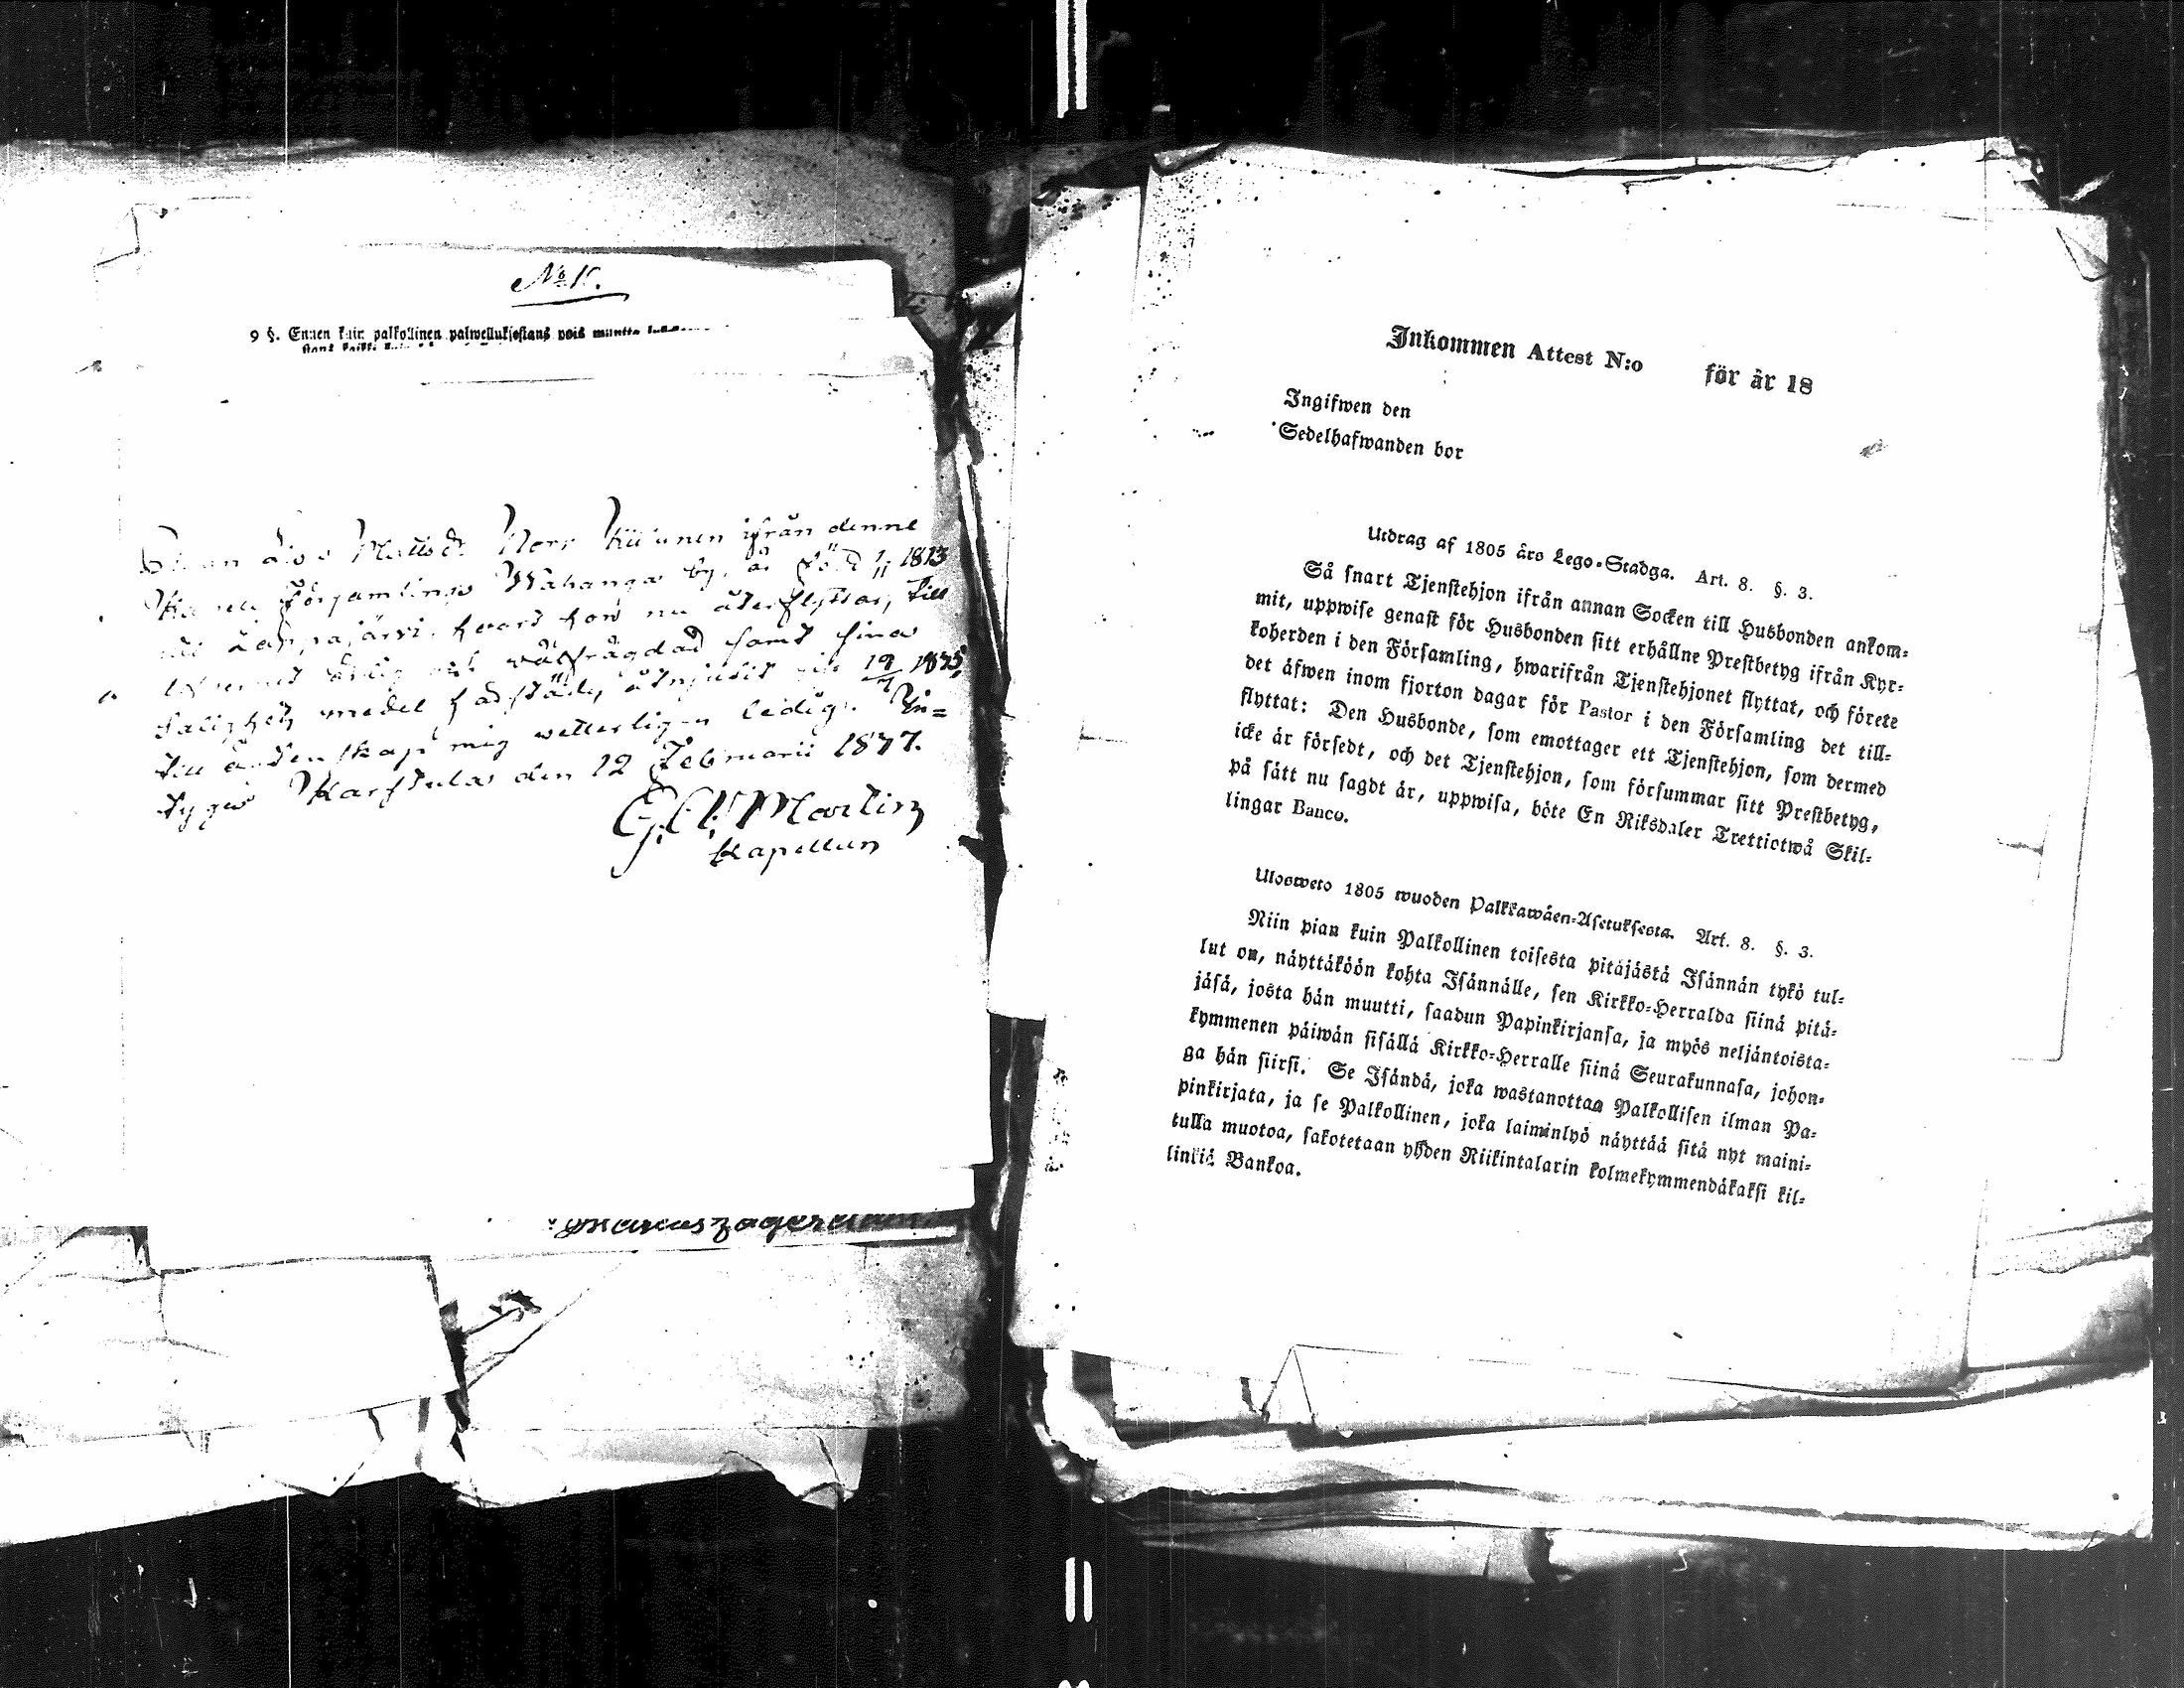 No 15.
9 §. Ennen kuin palkollinen palwelluksestans pois muutta
stans kaikki
Mattsdr Norr ifrån denne
Församlings Wahanga by, är född 1/11 1813
Lappajärvi, hvart hon nu återflyttar, till
wälfrägdad samt sina
Salighets medel hadstädes åtnjutit 19/7 1875,
till äcktenskap mig wetterligen ledig. Be=
tygas Karstula den 12 Februarii 1877.
G. A. Martin
Kapellan
Inkommen Attest N:o för år 18
Ingifwen den
Sedelhafwanden bor
Utdrag af 1805 års Lego-Stadga. Art. 8. §. 3.
Så snart Tjenstehjon ifrån annan Socken till Husbonden ankom=
mit, uppwise genast för Husbonden sitt erhållne Prestbetyg ifrån Kyr=
koherden i den Församling, hwarifrån Tjenstehjonet flyttat, och förete
det äfwen inom fjorton dagar för Pastor i den Församling det till=
flyttat: Den Husbonde, som emottager ett Tjenstehjon, som dermed
icke är försedt, och det Tjenstehjon, som försummar sitt Prestbetyg,
på sätt nu sagdt är, uppwisa, böte En Riksdaler Trettiotwå Skil=
lingar Banco.
Ulosweto 1805 wuoden Palkkawäen-Asetuksesta. Art. 8. §. 3.
Niin pian kuin Palkollinen toisesta pitäjästä Isännän tykö tul=
lut on, näyttäköön kohta Isännälle, sen Kirkko-Herralda siinä pitä=
jäsä, josta hän muutti, saadun Papinkirjansa, ja myös neljäntoista=
kymmenen päiwän sisällä Kirkko-Herralle siinä Seurakunnasa, johon=
ga hän siirsi. Se Isändä, joka wastanottaa Palkollisen ilman Pa=
pinkirjata, ja se Palkollinen, joka laiminlyö näyttää sitä nyt maini=
tulla muotoa, sakotetaan yhden Riikintalarin kolmekymmendäkaksi kil=
linkiä Bankoa.